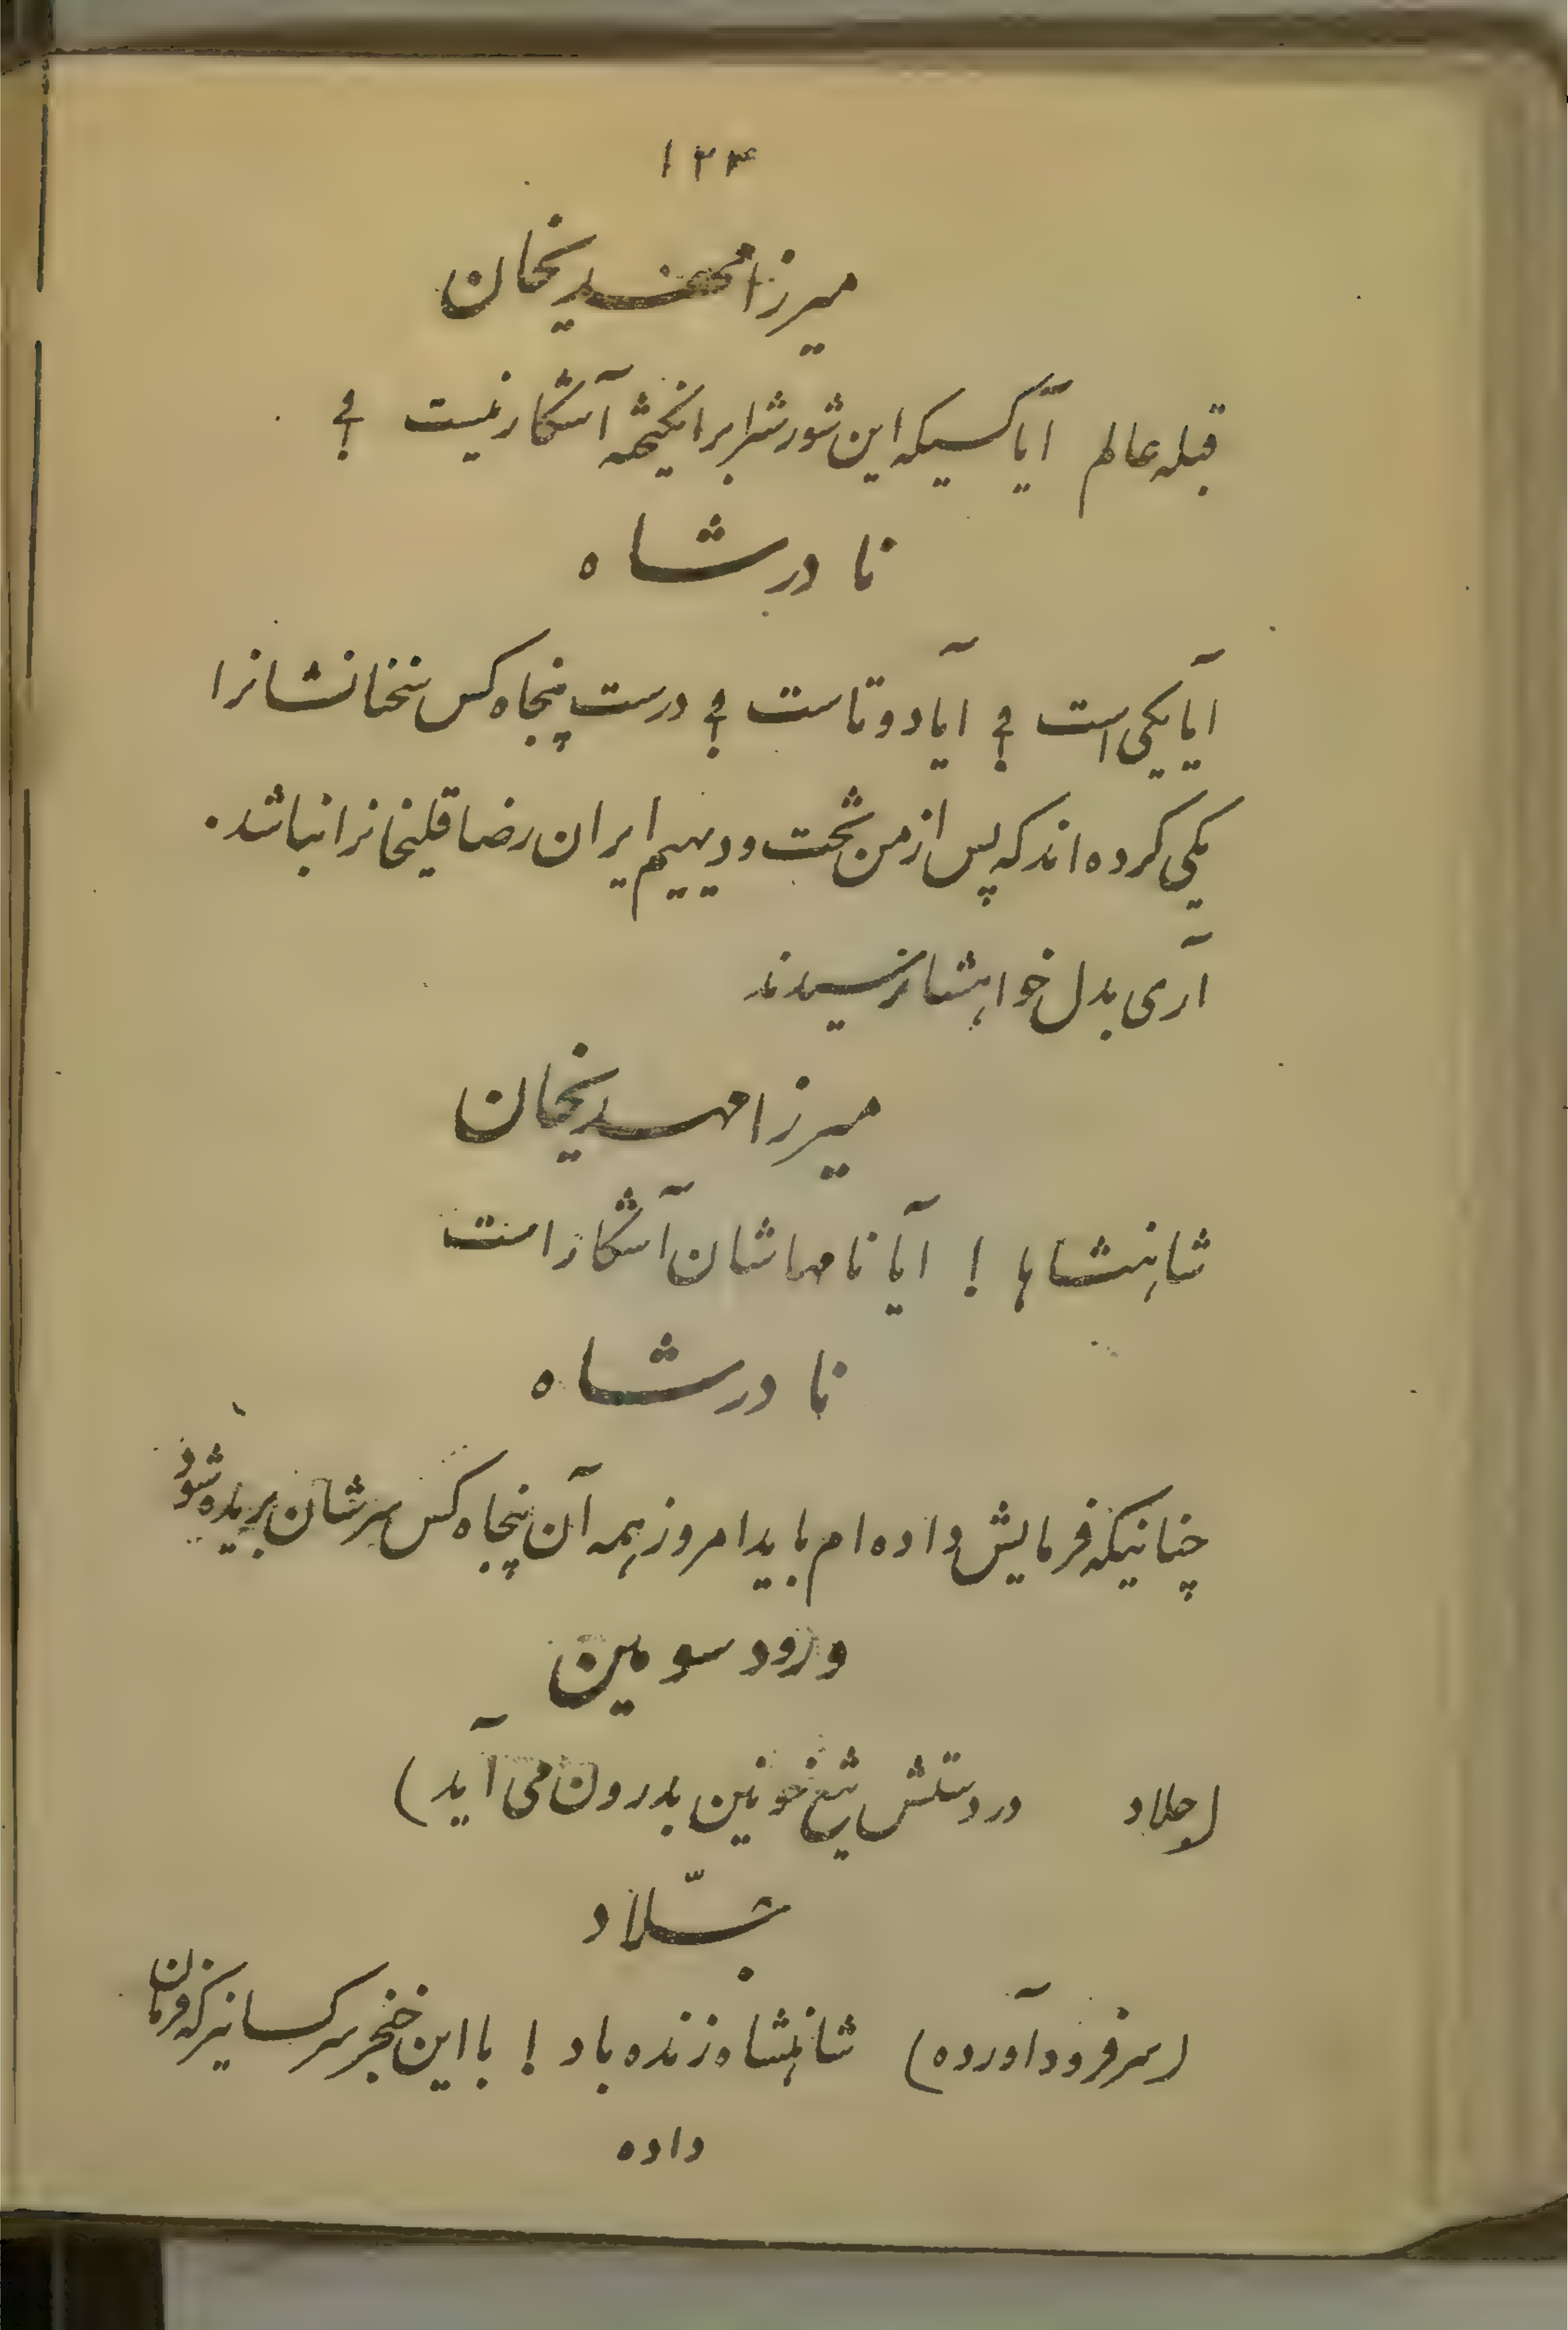 ۱۲۳
میرزا مهدیخان
قبله عالم آیا کسیکه این شورشرا برانگیخته آشکار نیست ؟
نادرشاه
آیا یکی است ؟ آیا دو تاست ؟ درست پنجاه کس سخنانشانرا
یکی کرده اند که پس از من تخت و دیهیم ایران رضا قلیخانرا نباشد .
آری بدل خواهشان رسیدند
میرزا مهدیخان
شاهنشاها ! آیا نامهاشان آشکار است
نادرشاه
چنانیکه فرمایش داده ام باید امروز همه آن پنجاه کس سرشان بریده شود
ورود سومین
(جلاد در دستش تیغ خونین بدرون می آید)
جلّاد
(سر فرود آورده) شاهنشاه زنده باد ! با این خنجر سر کسانیرکه فرمان
داده